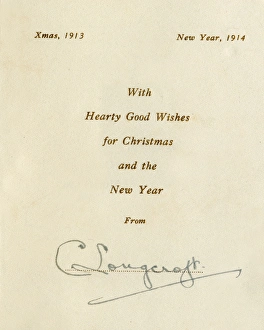 Xmas, 1913 New Year, 1914
With
Hearty Good Wishes
for Christmas
and the
New Year
From
C. Longcroft.